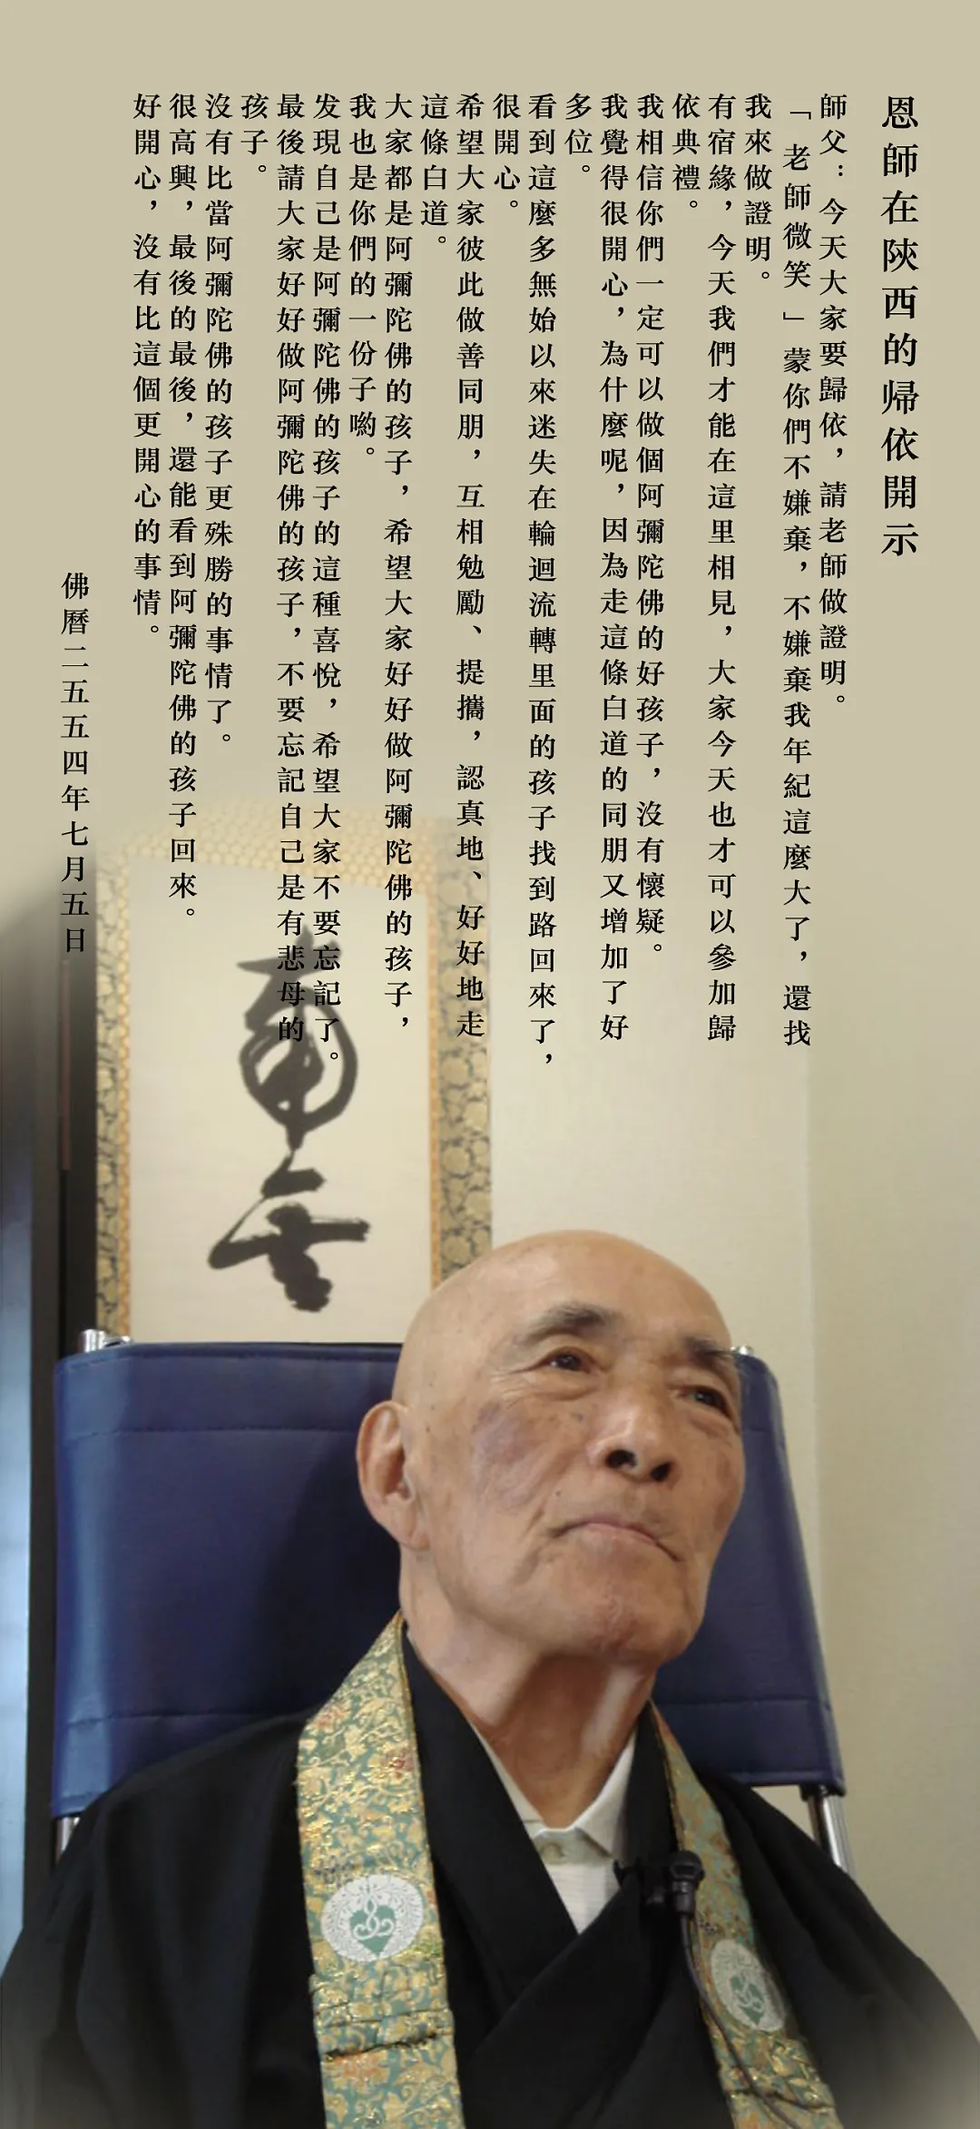 恩師在陝西的帰依開示
師父：今天大家要歸依，請老師做證明。
「老師微笑」蒙你們不嫌棄，不嫌棄我年紀這麼大了，還找
我來做證明。
有宿緣，今天我們才能在這里相見，大家今天也才可以參加歸
依典禮。
我相信你們一定可以做個阿彌陀佛的好孩子，沒有懷疑。
我覺得很開心，為什麼呢，因為走這條白道的同朋又增加了好
多位。
看到這麼多無始以來迷失在輪迴流轉里面的孩子找到路回來了，
很開心。
希望大家彼此做善同朋，互相勉勵、提攜，認真地、好好地走
這條白道。
大家都是阿彌陀佛的孩子，希望大家好好做阿彌陀佛的孩子，
我也是你們的一份子喲。
发現自己是阿彌陀佛的孩子的這種喜悅，希望大家不要忘記了。
最後請大家好好做阿彌陀佛的孩子，不要忘記自己是有悲母的
孩子。
沒有比當阿彌陀佛的孩子更殊勝的事情了。
很高興，最後的最後，還能看到阿彌陀佛的孩子回來。
好開心，沒有比這個更開心的事情。
佛曆二五五四年七月五日
南无